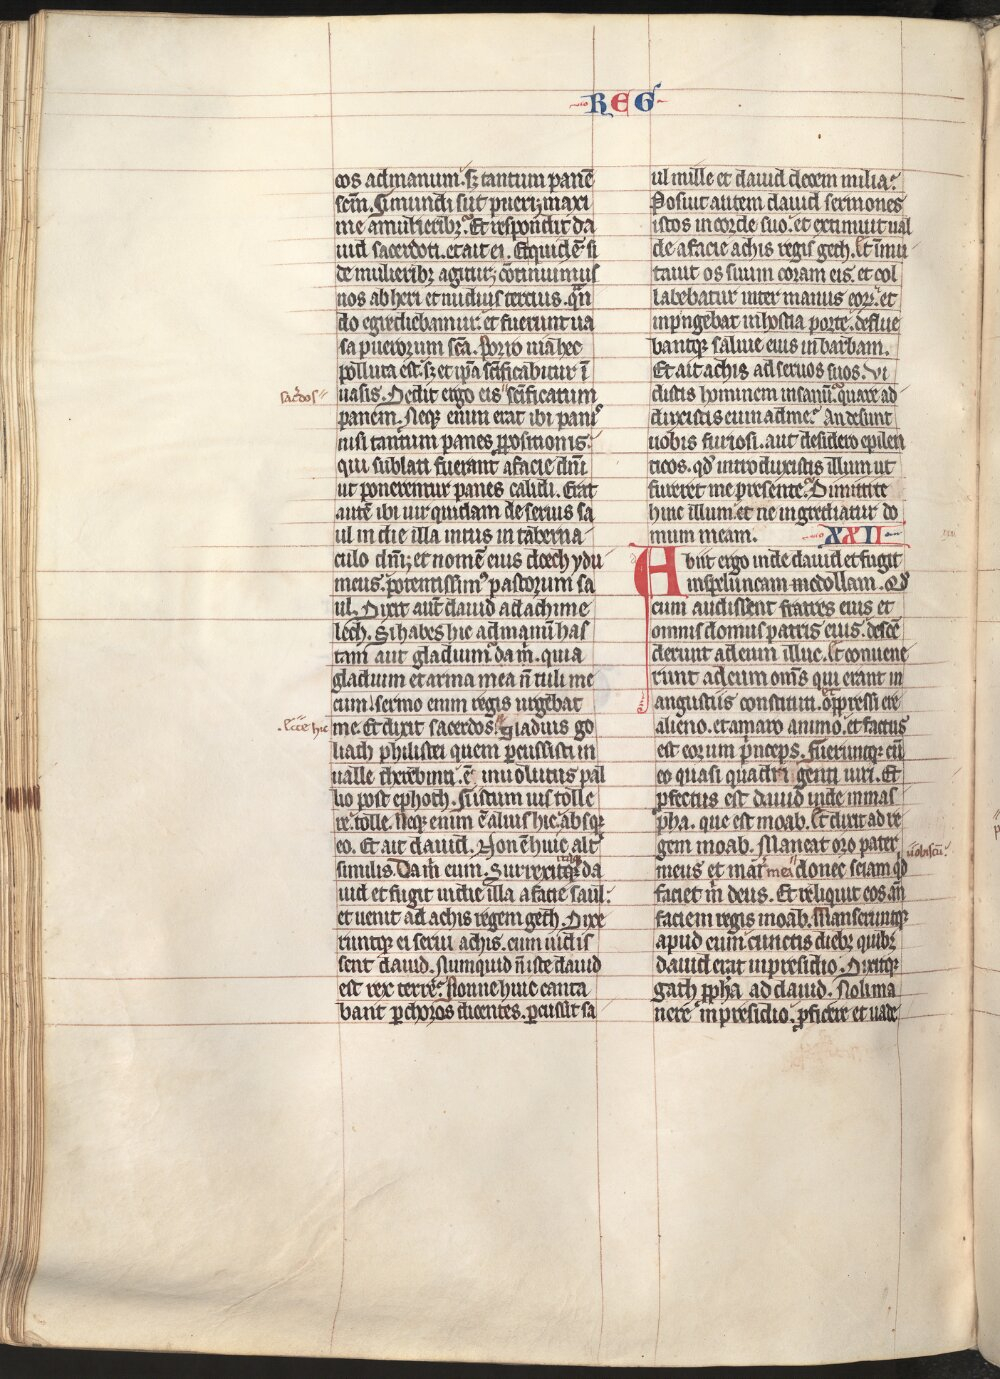 REG
eos ad manum. sꝫ tantum panē
scm̄. Si mundi sūt pueri; maxi
me a mulieribꝫ. Et respondit da
uid sacerdoti. et ait ei. Equidē si
de mulieribꝫ agitur; cōtinuimus
nos ab heri et nudius tercius. qn̄
do egrediebamur. et fuerunt ua
sa puerorum sc̄a. Porro uia hec
polluta est. sꝫ et ip̄a sc̄ificabitur ī
sac̄dos
uasis. Dedit ergo eis sc̄ificatum
panem. Neqꝫ enim erat ibi panis
nisi tantum panes ꝓpositionis.
qui sublati fuerant a facie dn̄i
ut ponerentur panes calidi. Erat
autē ibi uir quidam de seruis sa
ul in die illa intus in taberna
culo dn̄i; et nomē eius doech ydu
meus. potentissimꝰ pastorum sa
ul. Dixit aut̄ dauid ad achime
lech. Si habes hic ad manū has
tam aut gladium da m̄. quia
gladium et arma mea n̄ tuli me
cum. sermo enim regis urgebat
.Ecce hic
me. Et dixit sacerdos. Gladius go
liath philistei quem ꝑcussisti in
ualle therebinti. ē inuolutus pal
lio post ephoth. Si istum uis tolle
re. tolle. Neqꝫ enim ē alius hic absqꝫ
eo. Et ait dauid. Non ē huic alt̄
similis. Da m̄ eum. Surrexitqꝫ da
itaqꝫ
uid et fugit in die illa a facie saul.
et uenit ad achis regem geth. Dixe
runtqꝫ ei serui achis. cum uidis
sent dauid. Numquid n̄ iste dauid
est rex terre? Nonne huic canta
bant ꝑ choros dicentes. percussit sa
ul mille et dauid decem milia?
Posuit autem dauid sermones
istos in corde suo. et extimuit ual
de a facie achis regis geth. Et īmu
tauit os suum coram eis. et col
labebatur inter manus eoꝝ. et
inpingebat in hostia porte. deflue
bantqꝫ saliue eius in barbam.
Et ait achis ad seruos suos. Vi
distis hominem insanū. quare ad
duxistis eum ad me? An desunt
uobis furiosi. aut desidero epilen
ticos. qd̄ introduxistis illum ut
fureret me presente? Dimittite
hinc illum. et ne ingrediatur do
mum meam.
XXII
Abiit ergo inde dauid et fugit
in speluncam modollam. Qd̄
cum audissent fratres eius et
omnis domus patris eius. descē
derunt ad eum illuc. Et conuene
runt ad eum om̄s qui erant in
angustiis constituti. et oppressi ere
alieno. et amaro animo. et factus
est eorum pͥnceps. fueruntqꝫ cū
eo quasi quadringenti uiri. Et
ꝓfectus est dauid inde in mas
pha. que est moab. Et dixit ad re
gem moab. Maneat oro pater
uobiscū.
meus et mat̄ mea donec sciam qd̄
faciet m̄ deus. Et reliquit eos an̄
faciem regis moab. Manseruntqꝫ
apud eum cunctis diebꝫ quibꝫ
dauid erat in presidio. Dixitqꝫ
gath ꝓpha ad dauid. Noli ma
nere in presidio. ꝓficere et uade